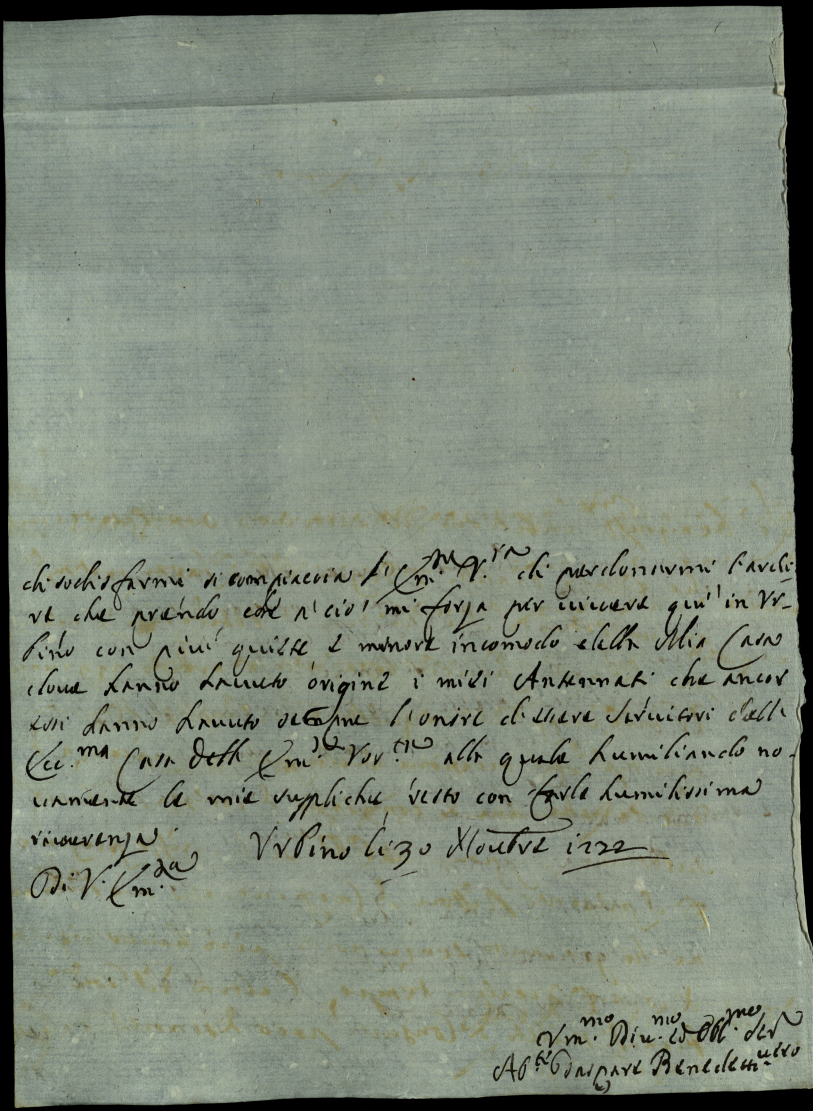 di sodisfarmi si compiaccia l' Em.za V.ra di perdonarmi l'ardi-
re che prendo che a' ciò mi forza per vivere quì in Ur-
bino con più quiete e minore incomodo della Mia Casa
dove hanno havuto origine i miei Antennati che ancor
essi hanno havuto sempre l'onore di essere servitori dell'
Ecc.ma Casa dell' Em.za Vos.tra alla quale humiliando no-
vamente le mie suppliche resto con farle humilissima
riverenza
Urbino li 30 Xbre 1722
Di V. Em.za
Um.mo Div.mo ed Obl.mo Ser
Ab.te Gaspare Benedetti vero